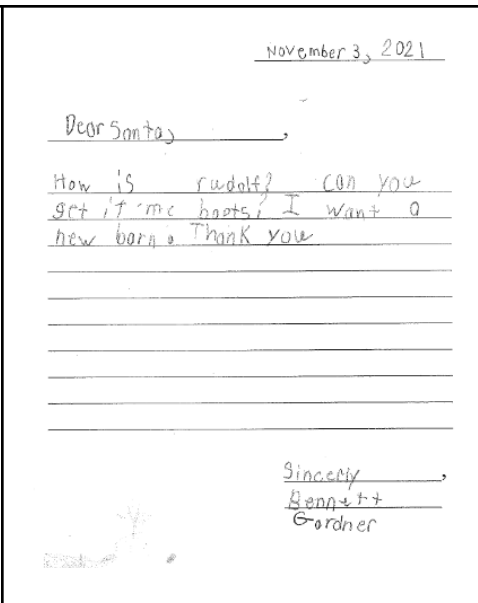 November 3, 2021
Dear Santa,
How is rudolf? can you
get it me boots? I want a
new barn. Thank you
Sincerly,
Bennett
Gardner